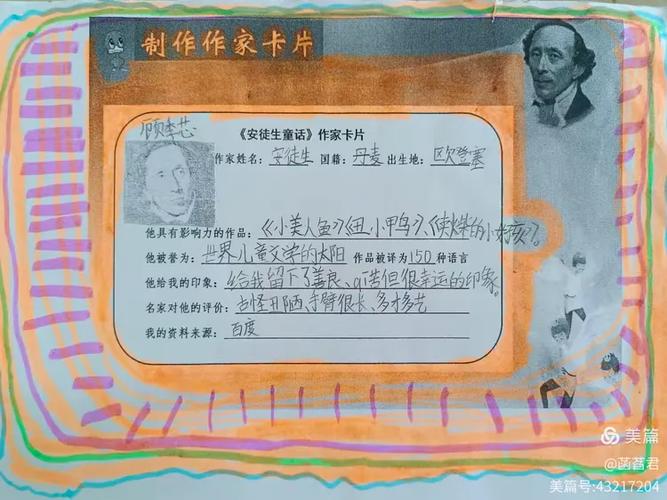 制作作家卡片
顾李芯
《安徒生童话》作家卡片
作家姓名：安徒生 国籍：丹麦 出生地：欧登塞
他具有影响力的作品：《小美人鱼》《丑小鸭》、《卖火柴的小女孩》。
他被誉为：世界儿童文学的太阳 作品被译为150种语言
他给我的印象：给我留下了善良、qi苦但很幸运的印象。
名家对他的评价：古怪丑陋、手臂很长、多才多艺
我的资料来源：百度
美篇
@菡萏君
美篇号:43217204